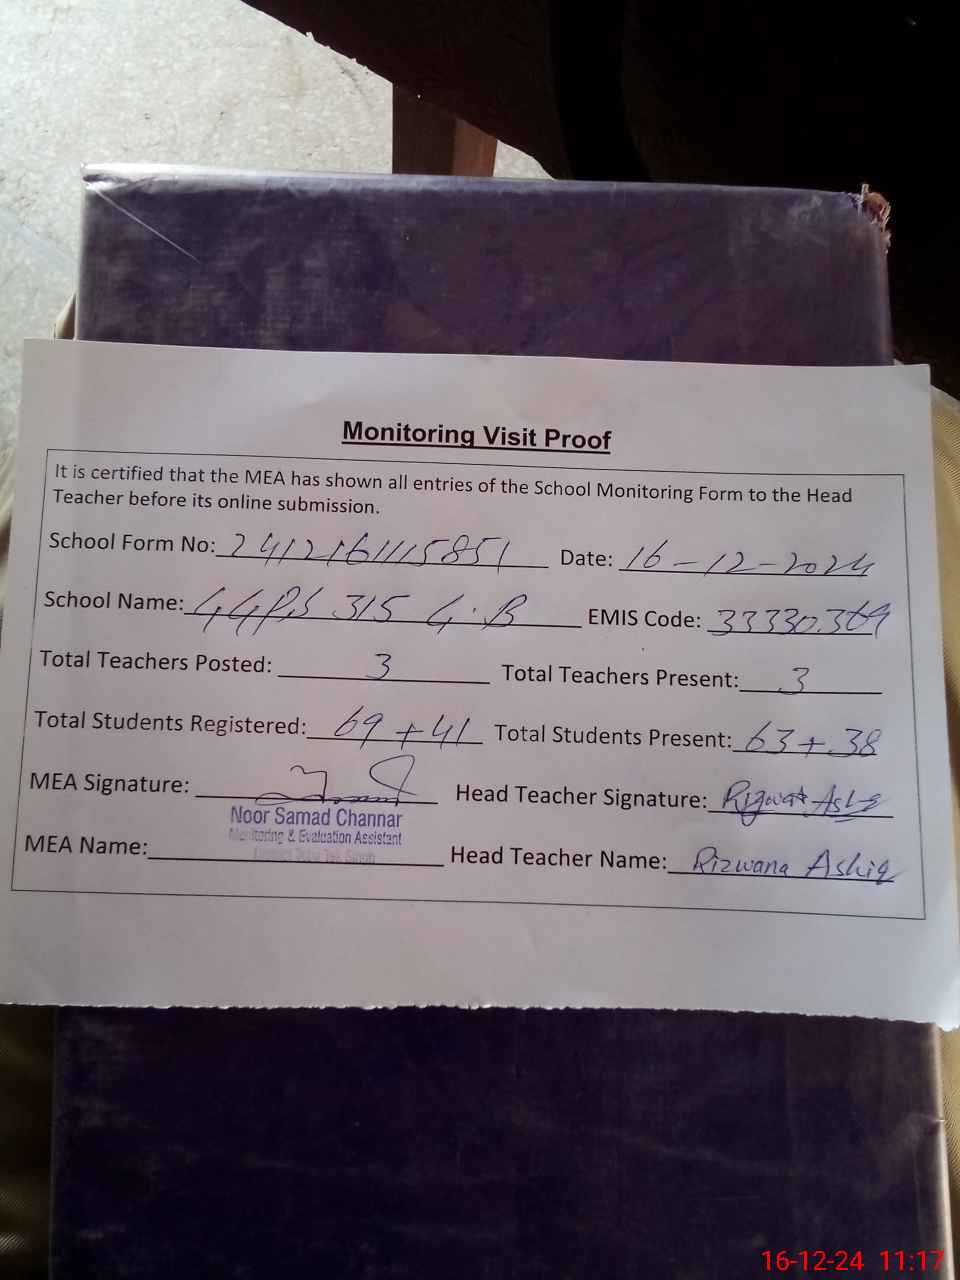 Monitoring Visit Proof
It is certified that the MEA has shown all entries of the School Monitoring Form to the Head
Teacher before its online submission.
School Form No: 2412161115851 Date: 16-12-2024
School Name: GGPS 315 G.B EMIS Code: 33330369
Total Teachers Posted: 3 Total Teachers Present: 3
Total Students Registered: 69+41 Total Students Present: 63+38
MEA Signature: Head Teacher Signature:
Noor Samad Channar
Monitoring & Evaluation Assistant
District Toba Tek Singh
MEA Name: Head Teacher Name: Rizwana Ashiq
16-12-24 11:17